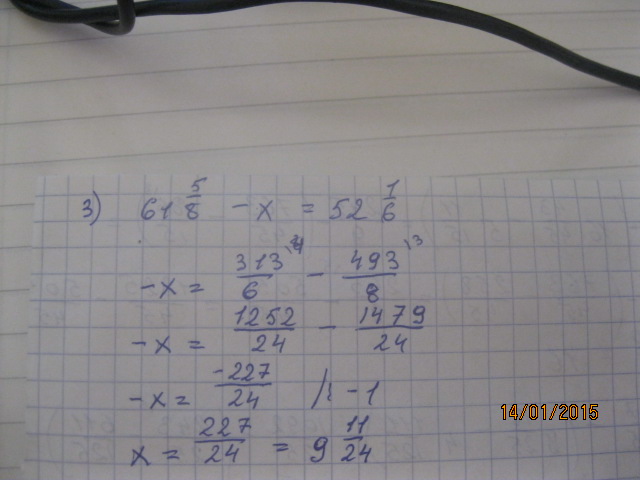 3) 61 5/8 - x = 52 1/6
-x = 313/6 ,4 - 493/8 ,3
-x = 1252/24 - 1479/24
-x = -227/24 /: -1
x = 227/24 = 9 11/24
14/01/2015